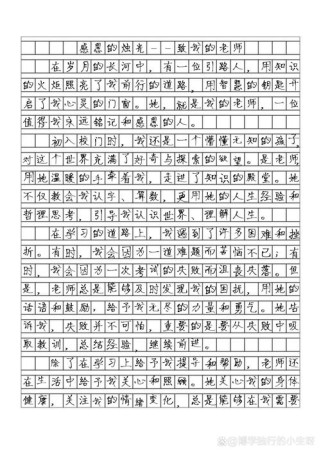 感恩的烛光——致我的老师
在岁月的长河中，有一位引路人，用知识
的火炬照亮了我前行的道路，用智慧的钥匙开
启了我心灵的门窗。她，就是我的老师，一位
值得我永远铭记和感恩的人。
初入校门时，我还是一个懵懂无知的孩子，
对这个世界充满了好奇与探索的欲望。是老师
用她温暖的手牵着我，走进了知识的殿堂。她
不仅教会我认字、算数，更用她的人生经验和
哲理思考，引导我认识世界、理解人生。
在学习的道路上，我遇到了许多困难和挫
折。有时，我会因为一道难题而苦恼不已；有
时，我会因为一次考试的失败而沮丧失落。但
是，老师总是能够及时发现我的困扰，用她的
话语和鼓励，给予我无尽的力量和勇气。她告
诉我，失败并不可怕，重要的是要从失败中吸
取教训，总结经验，继续前进。
除了在学习上给予我指导和帮助，老师还
在生活中给予我关心和照顾。她关心我的身体
健康，关注我的情绪变化，总是能够在我需要